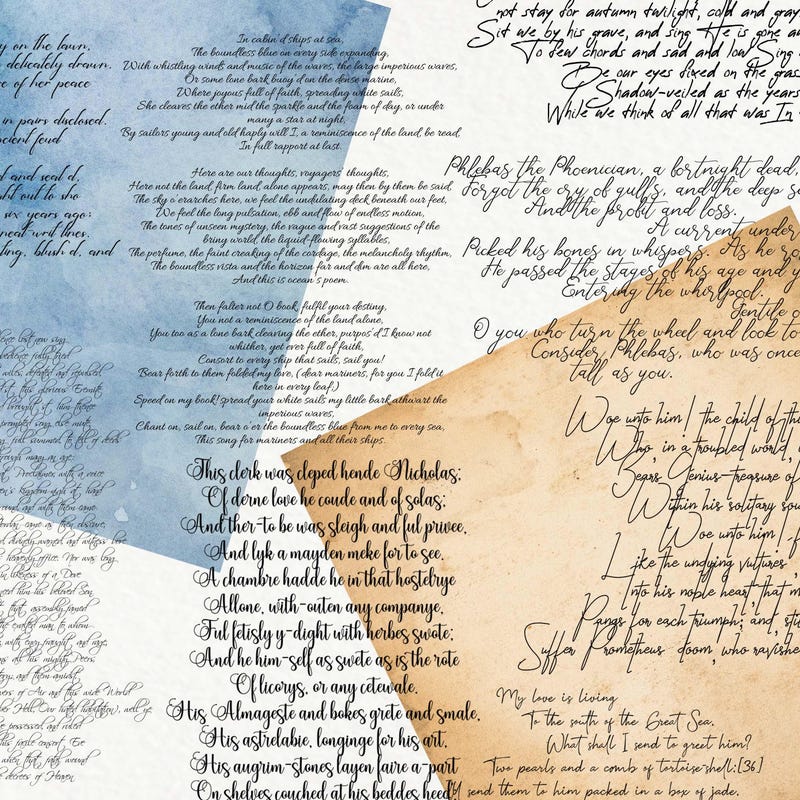 y on the lawn,
delicately drawn.
ce of her peace
in pairs disclosed.
ncient feud
d and seal'd,
ght out to sho
six years ago:
neat-writ lines.
ting, blush'd, and
In cabin'd ships at sea,
The boundless blue on every side expanding,
With whistling winds and music of the waves, the large imperious waves,
Or some lone bark buoy'd on the dense marine,
Where joyous full of faith, spreading white sails,
She cleaves the ether mid the sparkle and the foam of day, or under
many a star at night,
By sailors young and old haply will I, a reminiscence of the land, be read,
In full rapport at last.
Here are our thoughts, voyagers' thoughts,
Here not the land, firm land, alone appears, may then by them be said,
The sky o'erarches here, we feel the undulating deck beneath our feet,
We feel the long pulsation, ebb and flow of endless motion,
The tones of unseen mystery, the vague and vast suggestions of the
briny world, the liquid-flowing syllables,
The perfume, the faint creaking of the cordage, the melancholy rhythm,
The boundless vista and the horizon far and dim are all here,
And this is ocean's poem.
Then falter not O book, fulfil your destiny,
You not a reminiscence of the land alone,
You too as a lone bark cleaving the ether, purpos'd I know not
whither, yet ever full of faith,
Consort to every ship that sails, sail you!
Bear forth to them folded my love, (dear mariners, for you I fold it
here in every leaf;)
Speed on my book! spread your white sails my little bark athwart the
imperious waves,
Chant on, sail on, bear o'er the boundless blue from me to every sea,
This song for mariners and all their ships.
not stay for autumn twilight, cold and gray
Sit we by his grave, and sing He is gone a
To few chords and sad and low Sing
Be our eyes fixed on the gras
Shadow-veiled as the years
While we think of all that was In
Phlebas the Phoenician, a fortnight dead,
Forgot the cry of gulls, and the deep s
And the profit and loss.
A current under
Picked his bones in whispers. As he ro
He passed the stages of his age and y
Entering the whirlpool.
Gentile o
O you who turn the wheel and look to
Consider Phlebas, who was once
tall as you.
ience lost now sing
bedience fully tried
wiles, defeated and repulsed
this glorious Eremite
brought'st him thence
prompted song else mute
full summed, to tell of deeds
through many an age
Proclaimer, with a voice
en's kingdom nigh at hand
and with them came
Jordan came as then obscure,
divinely warned, and witness bore
heavenly office. Nor was long
in likeness of a Dove
nced him his beloved Son.
that assembly famed
the exalted man to whom
with envy fraught and rage,
ns all his mighty Peers,
and, them amidst,
wers of Air and this wide World
her Hell, Our hated habitation), well ye
e possessed, and ruled
his facile consort Eve
when that fatal wound
e decrees of Heaven
This clerk was cleped hende Nicholas;
Of derne love he coude and of solas;
And ther-to be was sleigh and ful privee,
And lyk a mayden meke for to see,
A chambre hadde he in that hostelrye
Allone, with-outen any companye,
Ful fetisly y-dight with herbes swote;
And he him-self as swete as is the rote
Of licorys, or any cetewale.
His Almageste and bokes grete and smale,
His astrelabie, longinge for his art,
His augrim-stones layen faire a-part
On shelves couched at his beddes heed
Woe unto him! the child of thi
Who, in a troubled world,
Bears Genius-treasure of
Within his solitary sou
Woe unto him! f
Like the undying vultures,
Into his noble heart, that m
Pangs for each triumph; and, st
Suffer Prometheus' doom, who ravishe
My love is living
To the south of the Great Sea.
What shall I send to greet him?
Two pearls and a comb of tortoise-shell:[36]
I'll send them to him packed in a box of jade.